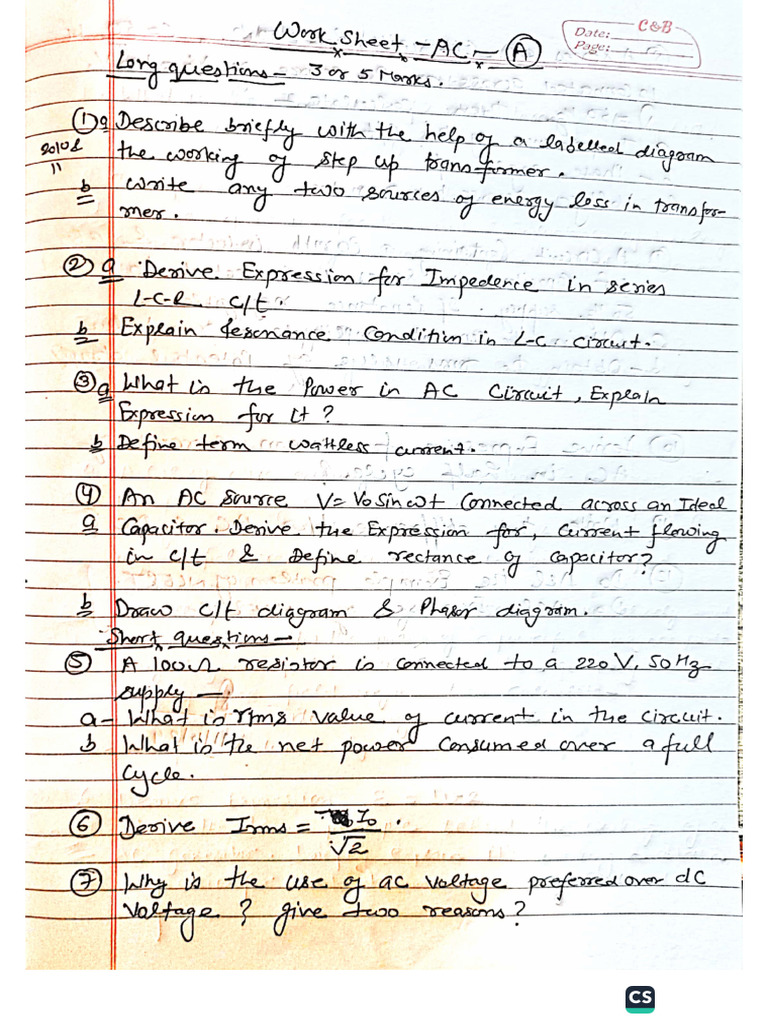 Work Sheet - AC - A
C&B
Date:
Page:
Long questions - 3 or 5 Marks.
① a Describe briefly with the help of a labelled diagram
the working of step up transformer.
b Write any two sources of energy loss in transfor-
mer.
② a Derive Expression for Impedence in series
L-C-R c/t.
b Explain Resonance Condition in L-C circuit.
③ a What is the Power in AC Circuit, Explain
Expression for it?
b Define term wattless current.
④ An AC source V= Vo sin ωt connected across an Ideal
a Capacitor. Derive the Expression for, current flowing
in c/t & Define rectance of capacitor?
b Draw c/t diagram & Phasor diagram.
Short questions -
⑤ A 100Ω resistor is connected to a 220 V, 50 Hz
supply —
a - What is rms value of current in the circuit.
b What is the net power consumed over a full
cycle.
⑥ Derive Irms = I₀/√2 .
⑦ Why is the use of ac voltage preferred over dC
voltage ? give two reasons?
CS